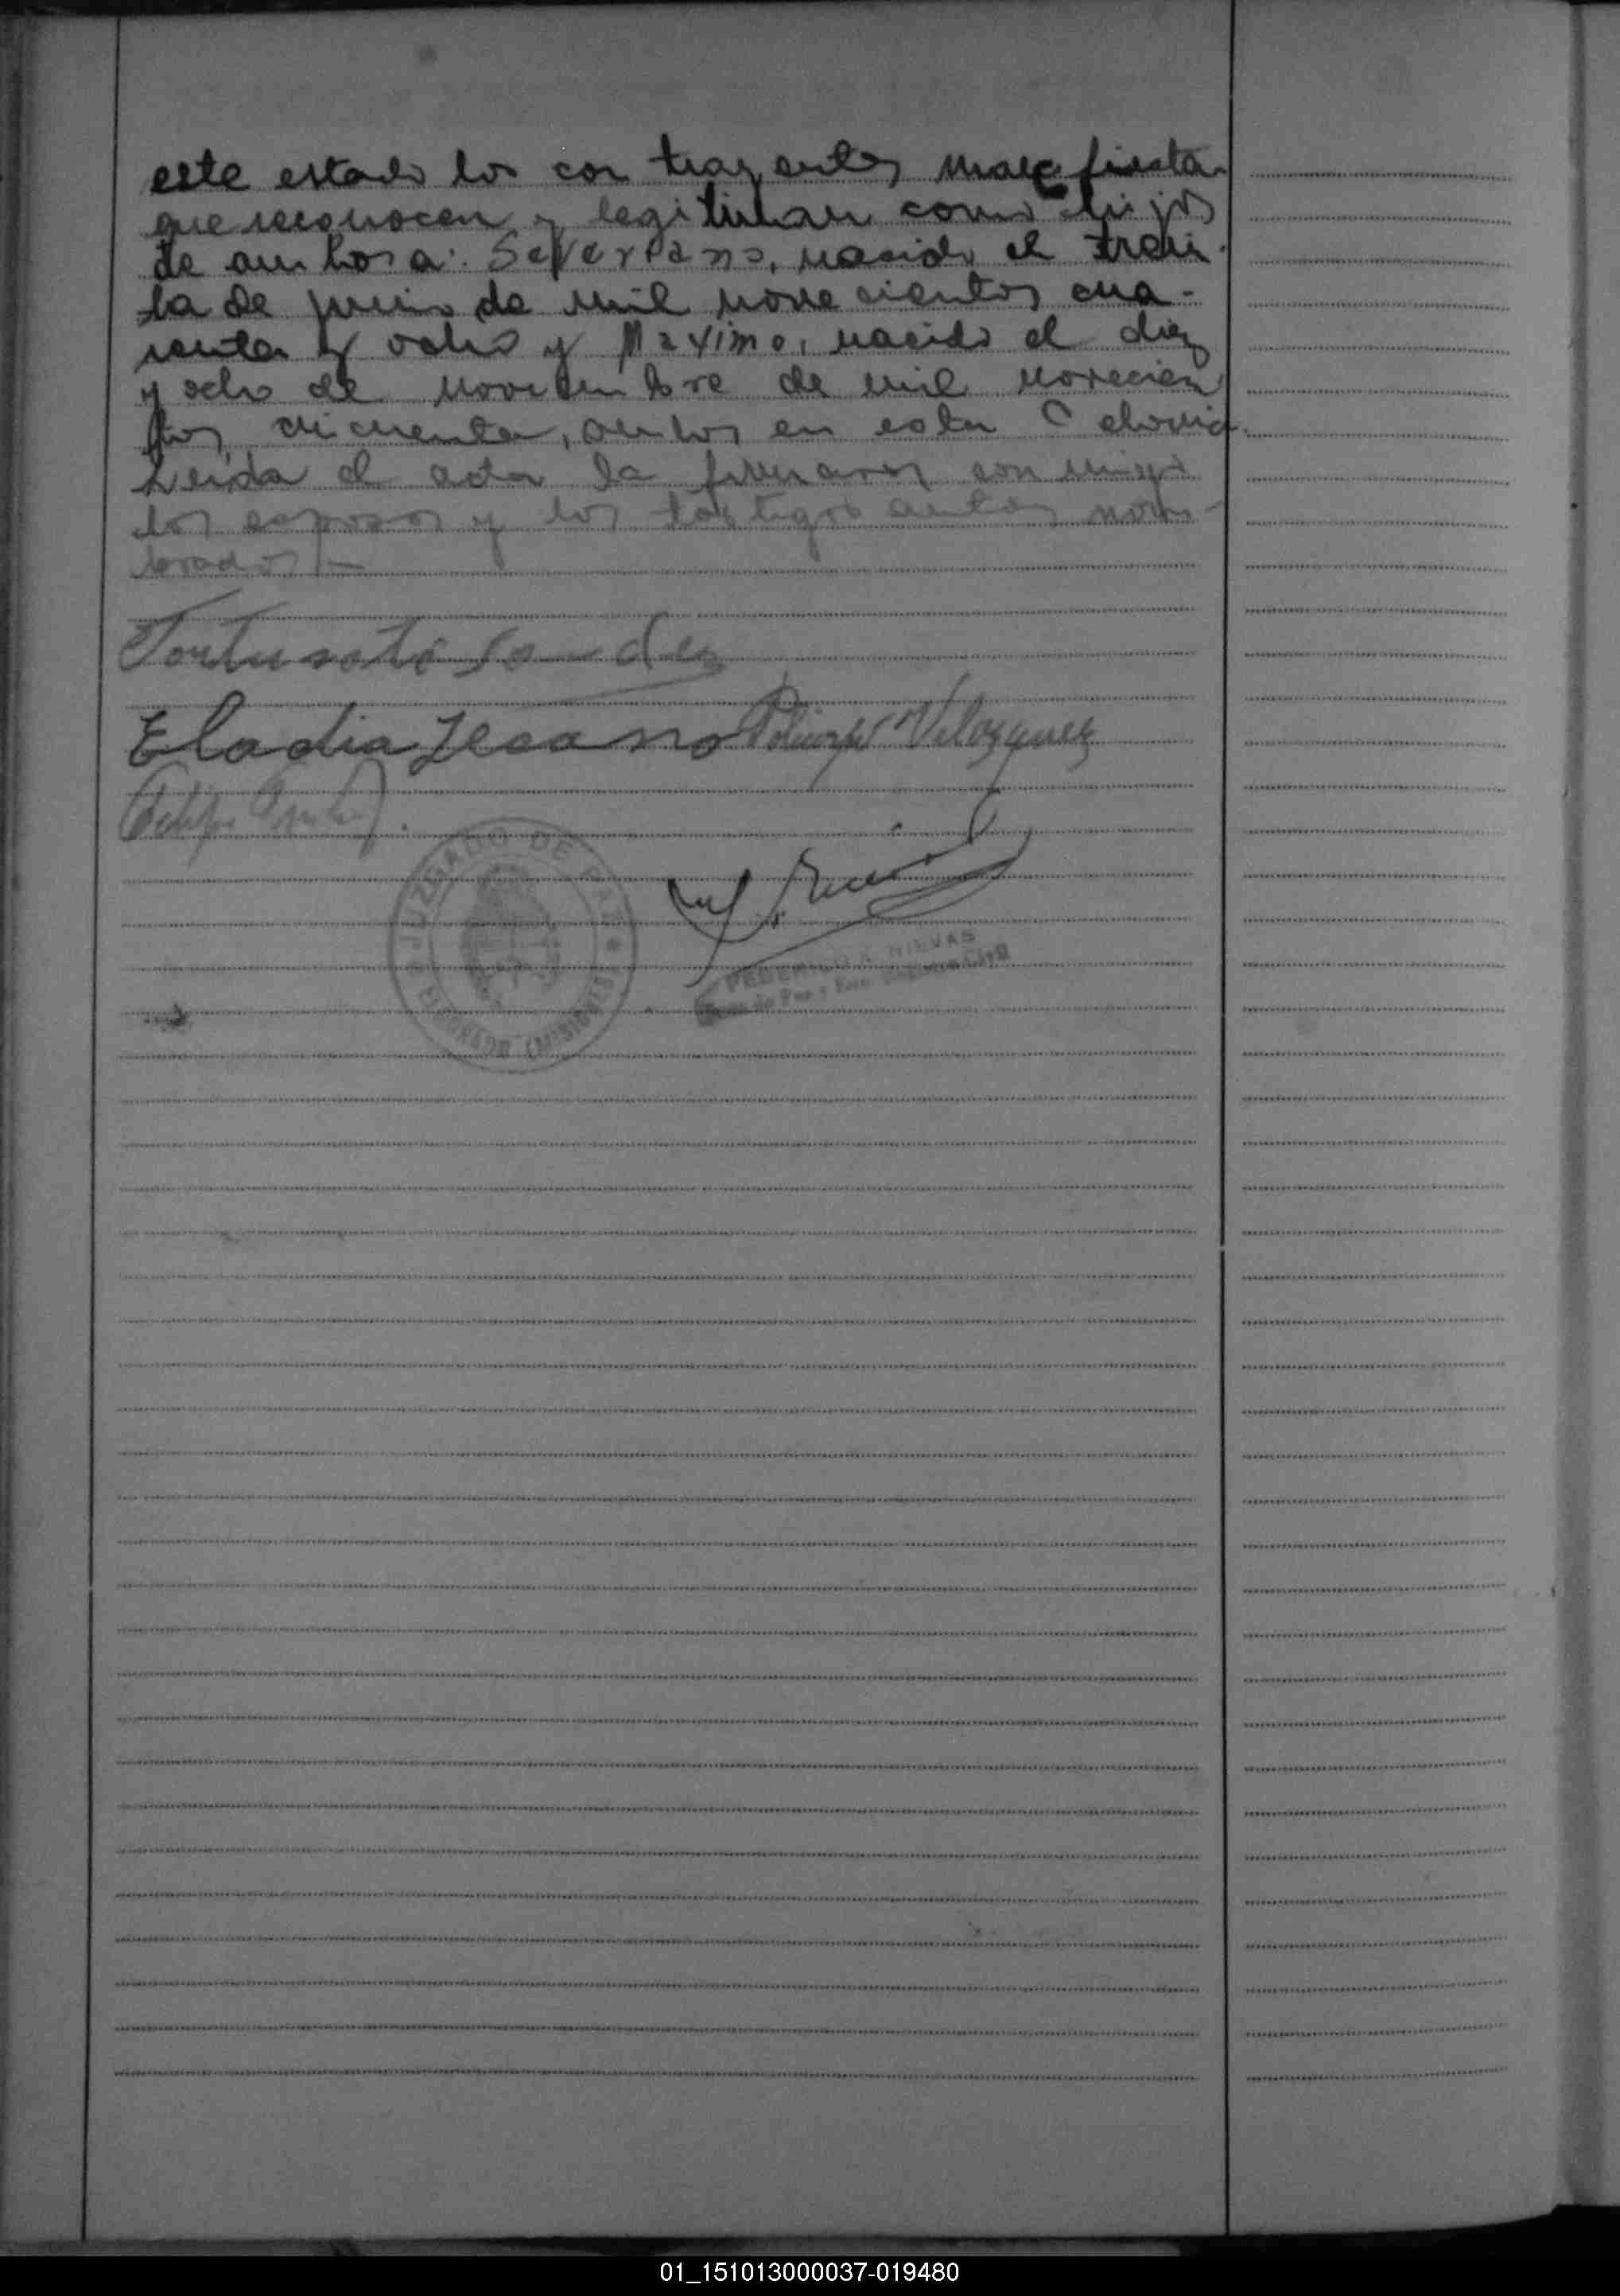 este estado los contrayentes manifiestan
que reconocen y legitiman como hijos
de ambos a: Severiano, nacido el trein-
ta de junio de mil novecientos cua-
renta y ocho y Maximo, nacido el diez
y ocho de noviembre de mil novecien
tos cincuenta, ambos en esta Colonia.
Leida el acta la firmaron conmigo
los esposos y los testigos antes nom-
brados.-
Eladia Lescano Velozquez
JUZGADO DE PAZ
ELDORADO (MISIONES)
FEDERICO NIEVAS
Juez de Paz y Enc. Registro Civil
01_151013000037-019480